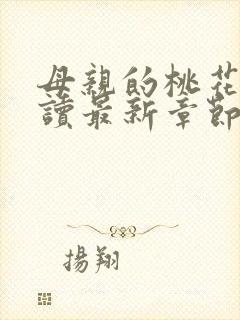 母親的桃花
讀最新章節
揚翔